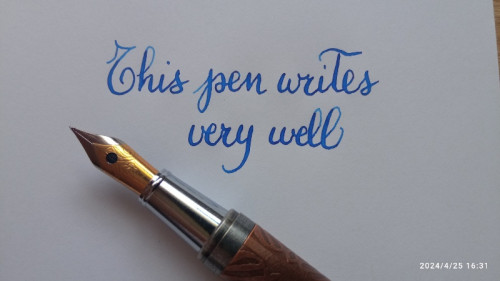 This pen writes
very well
2024/4/25 16:31